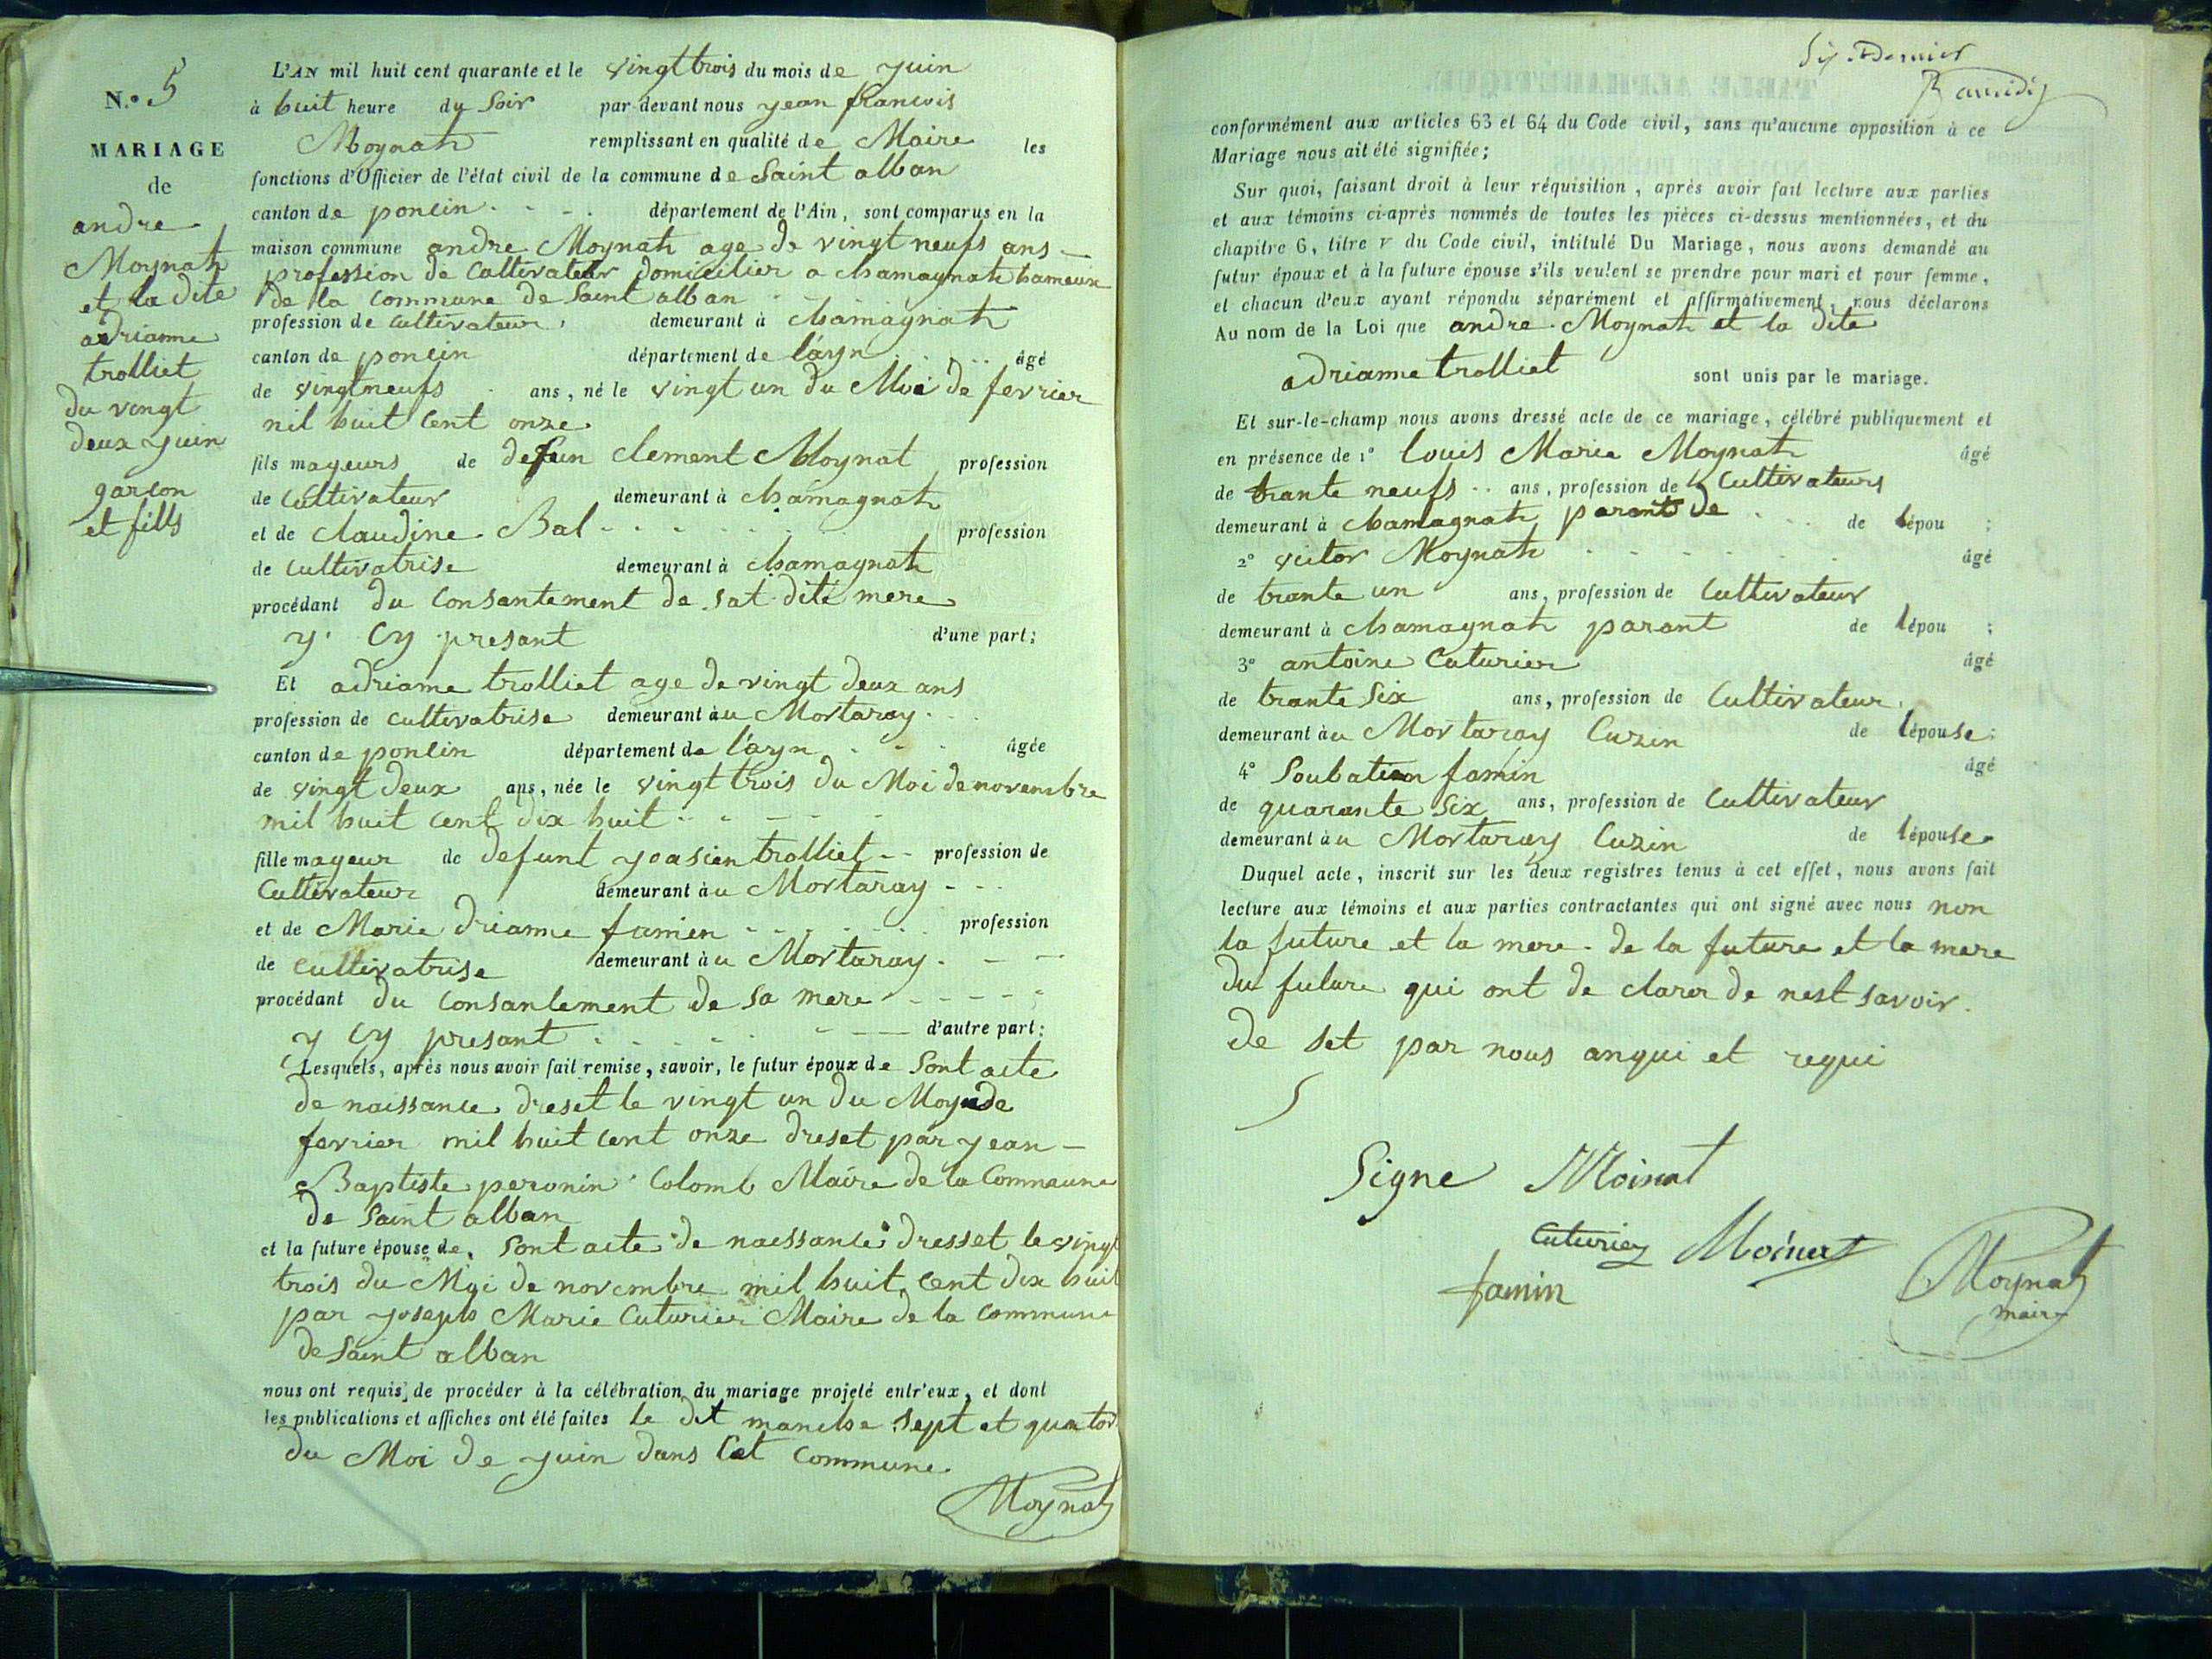 N.º 5
MARIAGE
de
andre
Moynat
et la dite
adrianne
trolliet
du vingt
deux juin
garcon
et fills
L'AN mil huit cent quarante et le vingt trois du mois de juin
à huit heure du Soir par devant nous jean francois
Moynat remplissant en qualité de Maire les
fonctions d'Officier de l'état civil de la commune de Saint alban
canton de poncin département de l'Ain, sont comparus en la
maison commune andre Moynat age de vingt neufs ans
profession de Cultivateur domicilier a chamagnat hameux
de la commune de Saint alban
profession de cultivateur demeurant à chamagnat
canton de poncin département de l'ayn âgé
de vingt neufs ans, né le vingt un du Moi de fevrier
mil huit cent onze
fils mayeurs de defun clement Moynat profession
de Cultivateur demeurant à chamagnat
et de claudine Bal profession
de cultivatrise demeurant à chamagnat
procédant du consantement de sat dite mere
y Cy presant d'une part;
Et adrianne trolliet age de vingt deux ans
profession de cultivatrise demeurant àu Mortaray
canton de poncin département de l'ayn âgée
de vingt deux ans, née le vingt trois du Moi de novembre
mil huit cent dix huit
fille mayeur de defunt joasien trolliet profession de
Cultivateur demeurant àu Mortaray
et de Marie drianne famin profession
de cultivatrise demeurant àu Mortaray
procédant du consantement de sa mere
y Cy presant d'autre part;
Lesquels, après nous avoir fait remise, savoir, le futur époux de Sont acte
de naissance dreset le vingt un du Moy de
fevrier mil huit cent onze dreset par jean
Baptiste peronin Colomb Maire de la Commune
de Saint alban
et la future épouse de, Sont acte de naissance dresset le vingt
trois du Moi de novembre mil huit cent dix huit
par joseph Marie Cuturier Maire de la commune
de Saint alban
nous ont requis, de procéder à la célébration du mariage projeté entr'eux, et dont
les publications et affiches ont été faites le dit manche sept et quator
du Moi de juin dans Cet commune
Moynat
Six Dernier
conformément aux articles 63 et 64 du Code civil, sans qu'aucune opposition à ce
Mariage nous ait été signifiée;
Sur quoi, faisant droit à leur réquisition, après avoir fait lecture aux parties
et aux témoins ci-après nommés de toutes les pièces ci-dessus mentionnées, et du
chapitre 6, titre V du Code civil, intitulé Du Mariage, nous avons demandé au
futur époux et à la future épouse s'ils veulent se prendre pour mari et pour femme,
et chacun d'eux ayant répondu séparément et affirmativement, nous déclarons
Au nom de la Loi que andre Moynat et la dite
adrianne trolliet sont unis par le mariage.
Et sur-le-champ nous avons dressé acte de ce mariage, célébré publiquement et
en présence de 1º louis Marie Moynat âgé
de trante neufs ans, profession de Cultivateurs
demeurant à chamagnat parant de de lépou ;
2º victor Moynat âgé
de trante un ans, profession de Cultivateur
demeurant à chamagnat parant de lépou ;
3º antoine Cuturier âgé
de trante Six ans, profession de Cultivateur
demeurant àu Mortaray Cuzin de lépouse;
4º Soubatien famin âgé
de quarante Six ans, profession de Cultivateur
demeurant àu Mortaray Cuzin de lépouse
Duquel acte, inscrit sur les deux registres tenus à cet effet, nous avons fait
lecture aux témoins et aux parties contractantes qui ont signé avec nous non
la future et la mere de la future et la mere
du future qui ont de clarer de nest savoir
de set par nous anqui et requi
Signe Moinat
Cuturier Moinat
famin
Moynat
maire